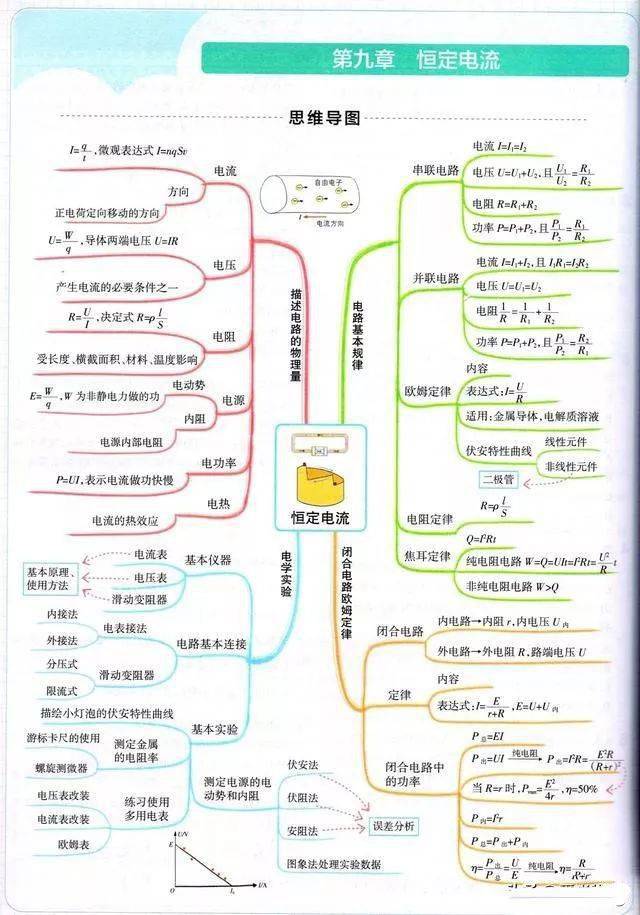 第九章 恒定电流
思维导图
恒定电流
描述电路的物理量
电流
I=q/t,微观表达式 I=nqSv
方向
正电荷定向移动的方向
自由电子
I
电流方向
电压
U=W/q,导体两端电压 U=IR
产生电流的必要条件之一
电阻
R=U/I,决定式 R=ρl/S
受长度、横截面积、材料、温度影响
电源
电动势
E=W/q,W 为非静电力做的功
内阻
电源内部电阻
电功率
P=UI,表示电流做功快慢
电热
电流的热效应
电路基本规律
串联电路
电流 I=I₁=I₂
电压 U=U₁+U₂,且U₁/U₂=R₁/R₂
电阻 R=R₁+R₂
功率 P=P₁+P₂,且P₁/P₂=R₁/R₂
并联电路
电流 I=I₁+I₂,且 I₁R₁=I₂R₂
电压 U=U₁=U₂
电阻1/R=1/R₁+1/R₂
功率 P=P₁+P₂,且P₁/P₂=R₂/R₁
欧姆定律
内容
表达式:I=U/R
适用:金属导体,电解质溶液
伏安特性曲线
线性元件
非线性元件
二极管
电阻定律
R=ρl/S
焦耳定律
Q=I²Rt
纯电阻电路 W=Q=UIt=I²Rt=U²/R t
非纯电阻电路 W>Q
电学实验
基本仪器
电流表
电压表
滑动变阻器
基本原理、
使用方法
电路基本连接
电表接法
内接法
外接法
滑动变阻器
分压式
限流式
基本实验
描绘小灯泡的伏安特性曲线
测定金属
的电阻率
游标卡尺的使用
螺旋测微器
练习使用
多用电表
电压表改装
电流表改装
欧姆表
测定电源的电
动势和内阻
伏安法
伏阻法
安阻法
误差分析
图象法处理实验数据
U/V
E
O
I/A
闭合电路欧姆定律
闭合电路
内电路→内阻 r,内电压 U内
外电路→外电阻 R,路端电压 U
定律
内容
表达式:I=E/(r+R),E=U+U内
闭合电路中
的功率
P总=EI
P出=UI 纯电阻 P出=I²R=E²R/(R+r)²
当 R=r 时,Pmax=E²/4r,η=50%
P内=I²r
P总=P出+P内
η=P出/P总=U/E 纯电阻 η=R/(R+r)